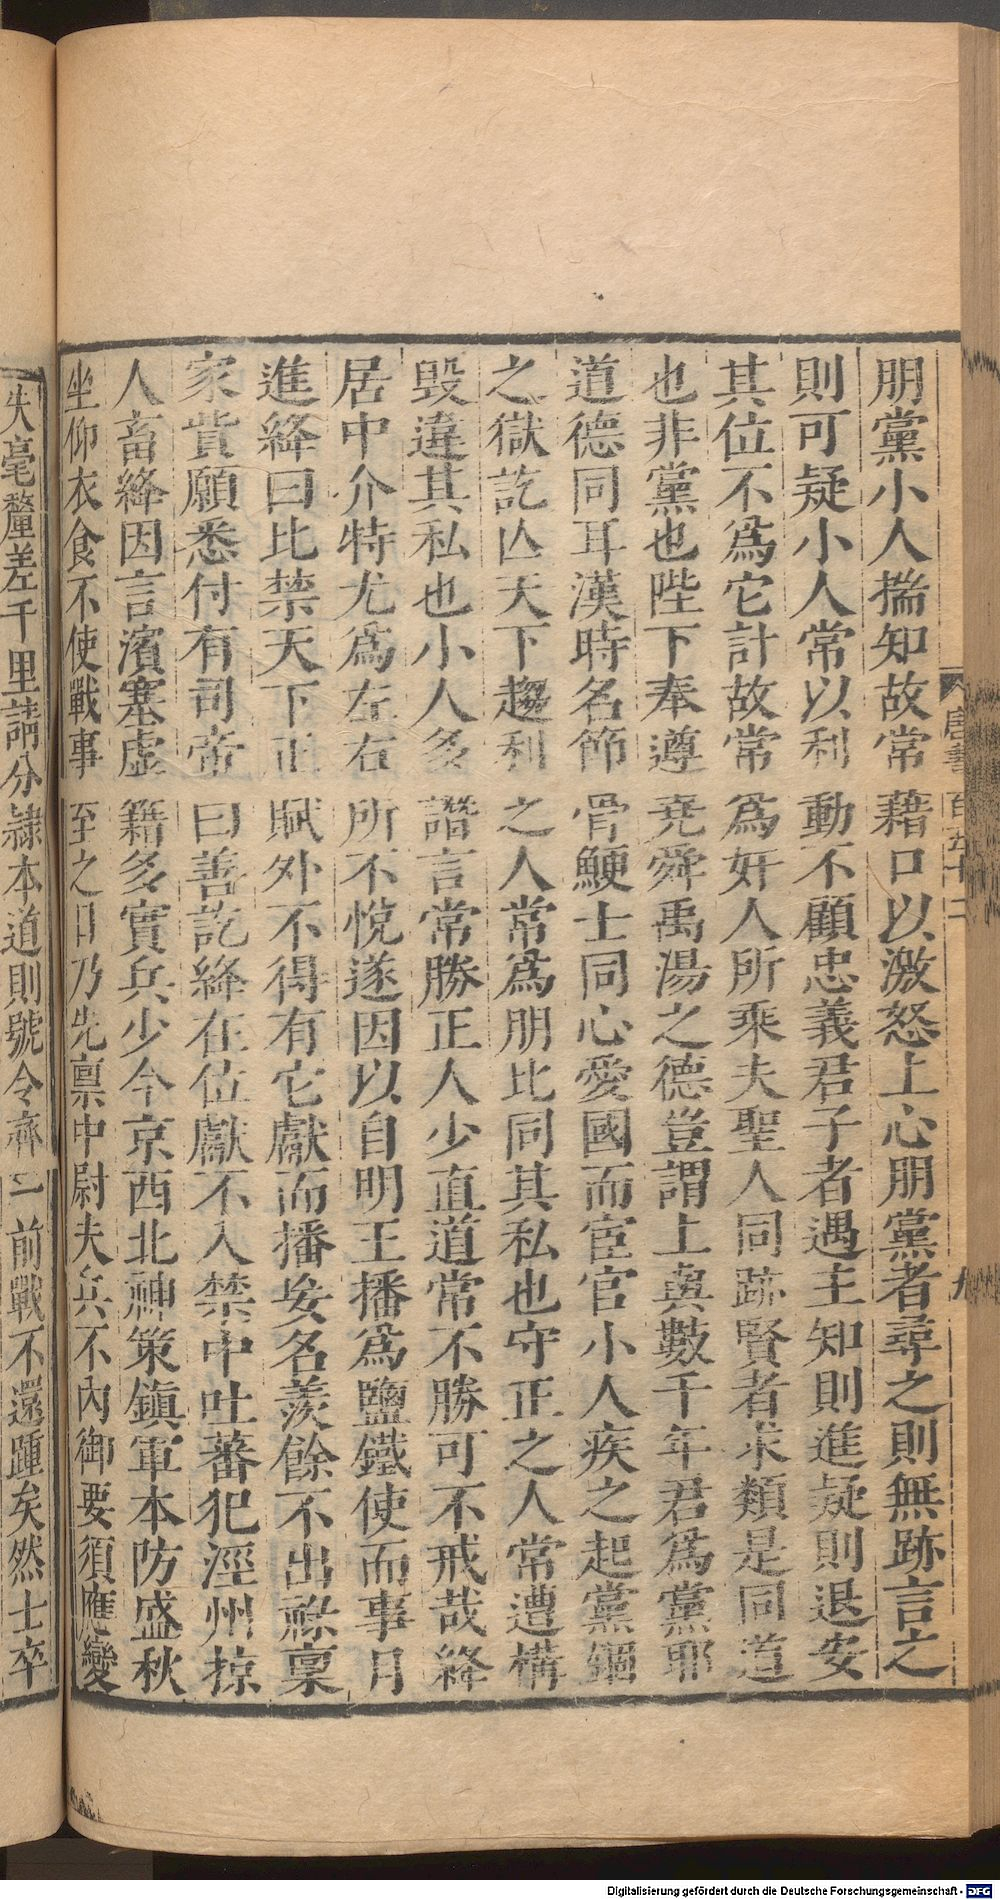 朋黨小人揣知故常藉口以激怒上心朋黨者尋之則無跡言之
則可疑小人常以利動不顧忠義君子者遇主知則進疑則退安
其位不爲它計故常爲奸人所乘夫聖人同跡賢者求類是同道
也非黨也陛下奉遵堯舜禹湯之德豈謂上與數千年君爲黨耶
道德同耳漢時名節骨鯁士同心愛國而宦官小人疾之起黨錮
之獄訖亾天下趨利之人常爲朋比同其私也守正之人常遭構
毀違其私也小人多譖言常勝正人少直道常不勝可不戒哉絳
居中介特尤爲左右所不悅遂因以自明王播爲鹽鐵使而事月
進絳曰比禁天下正賦外不得有它獻而播妄名羨餘不出祿稟
家貲願悉付有司帝曰善訖絳在位獻不入禁中吐蕃犯涇州掠
人畜絳因言濱塞虛籍多實兵少今京西北神策鎮軍本防盛秋
坐仰衣食不使戰事至之日乃先稟中尉夫兵不內御要須應變
失毫釐差千里請分隷本道則號令齊一前戰不還踵矣然士卒
唐書 百五十二
九
Digitalisierung gefördert durch die Deutsche Forschungsgemeinschaft - DFG